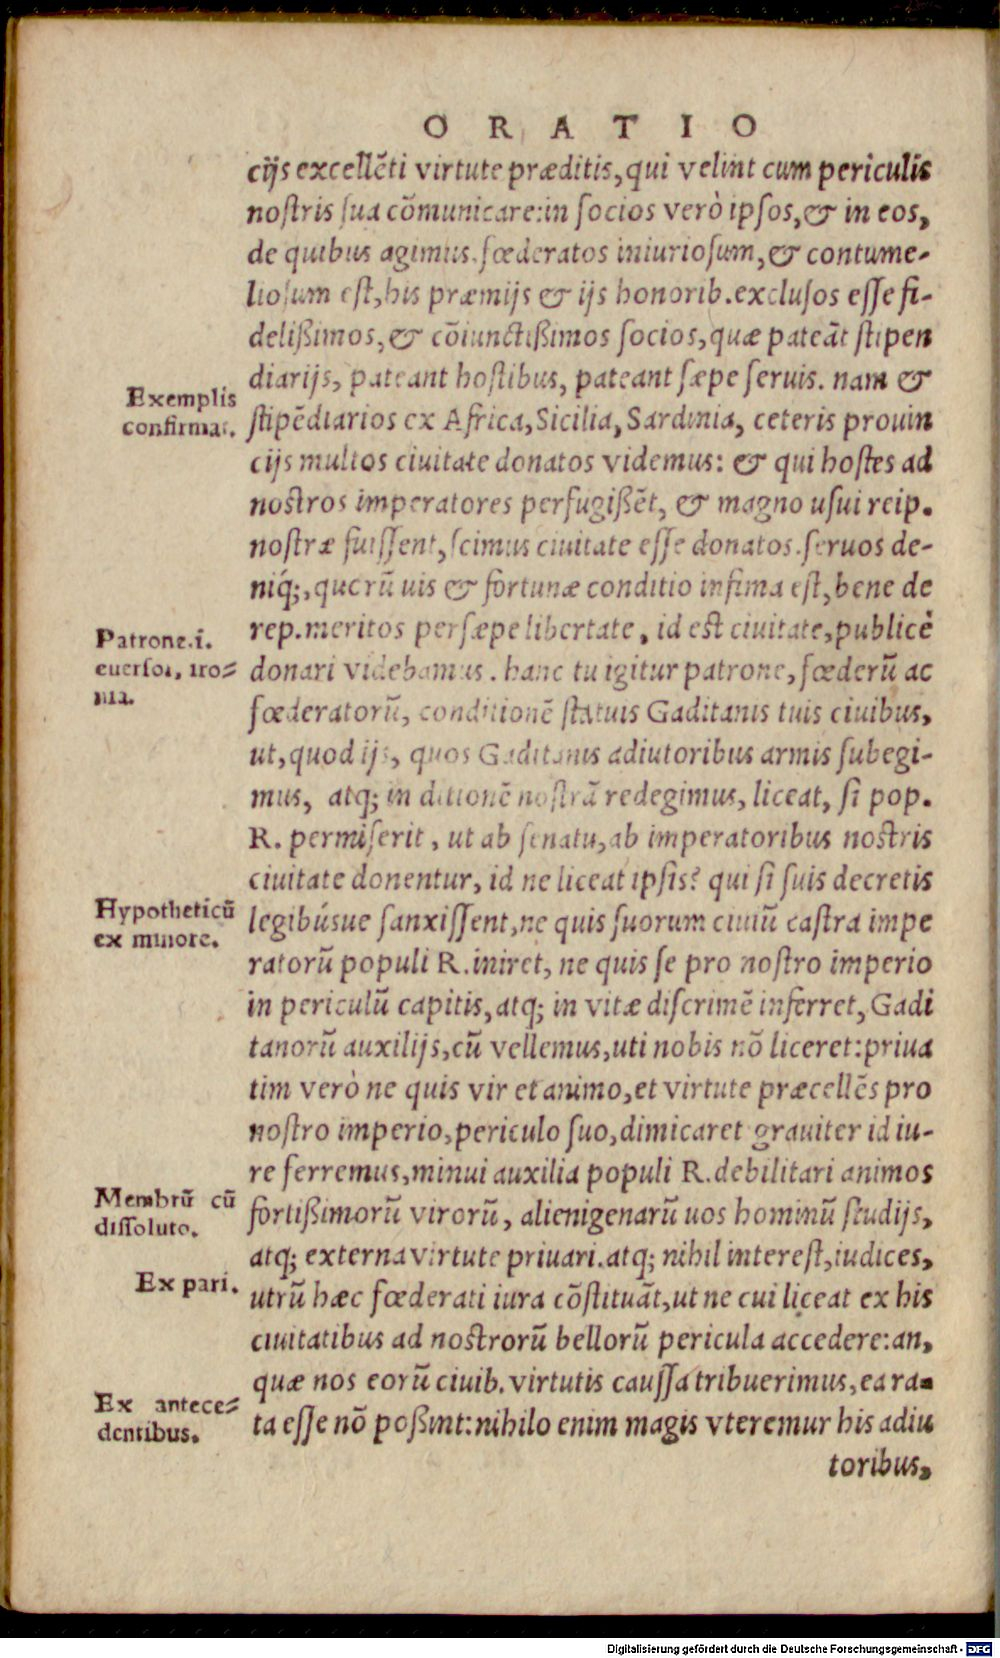 ORATIO
cijs excellẽti virtute præditis, qui velint cum periculis
nostris sua cõmunicare: in socios verò ipsos, & in eos,
de quibus agimus. fœderatos iniuriosum, & contume-
liosum est, his præmijs & ijs honorib. exclusos esse fi-
delißimos, & cõiunctißimos socios, quæ pateãt stipen
diarijs, pateant hostibus, pateant sæpe servis. nam &
Exemplis
confirmat.
stipẽdiarios ex Africa, Sicilia, Sardinia, ceteris prouin
cijs multos ciuitate donatos videmus: & qui hostes ad
nostros imperatores perfugißẽt, & magno usui reip.
nostræ fuissent, scimus ciuitate esse donatos. seruos de-
niq́;, quorũ uis & fortunæ conditio infima est, bene de
rep. meritos persæpe libertate, id est ciuitate, publicè
Patrone .i.
euersor, iro-
nia.
donari videbamus. hanc tu igitur patrone, fœderũ ac
fœderatorũ, conditionẽ statuis Gaditanis tuis ciuibus,
ut, quod ijs, quos Gaditanis adiutoribus armis subegi-
mus, atq; in ditionẽ nostrã redegimus, liceat, si pop.
R. permiserit, ut ab senatu, ab imperatoribus nostris
ciuitate donentur, id ne liceat ipsis? qui si suis decretis
Hypotheticũ
ex minore.
legibúsue sanxissent, ne quis suorum ciuiũ castra impe
ratorũ populi R. iniret, ne quis se pro nostro imperio
in periculũ capitis, atq; in vitæ discrimẽ inferret, Gadi
tanorũ auxilijs, cũ vellemus, uti nobis nõ liceret: priua
tim verò ne quis vir et animo, et virtute præcellẽs pro
nostro imperio, periculo suo, dimicaret grauiter id iu-
re ferremus, minui auxilia populi R. debilitari animos
Membrũ cũ
dissoluto.
fortißimorũ virorũ, alienigenarũ uos hominũ studijs,
atq; externa virtute priuari. atq; nihil interest, iudices,
Ex pari.
utrũ hæc fœderati iura cõstituãt, ut ne cui liceat ex his
ciuitatibus ad nostrorũ bellorũ pericula accedere: an,
quæ nos eorũ ciuib. virtutis caussa tribuerimus, ea ra-
Ex antece-
dentibus.
ta esse nõ poßint: nihilo enim magis vteremur his adiu
toribus,
Digitalisierung gefördert durch die Deutsche Forschungsgemeinschaft - DFG